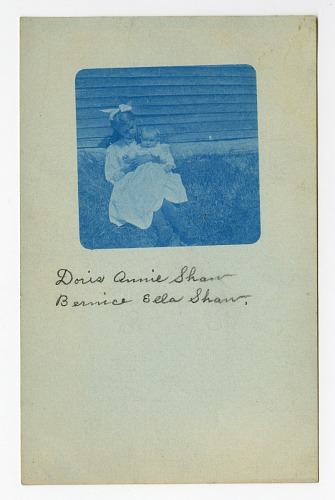 Doris Annie Shaw
Bernice Ella Shaw.